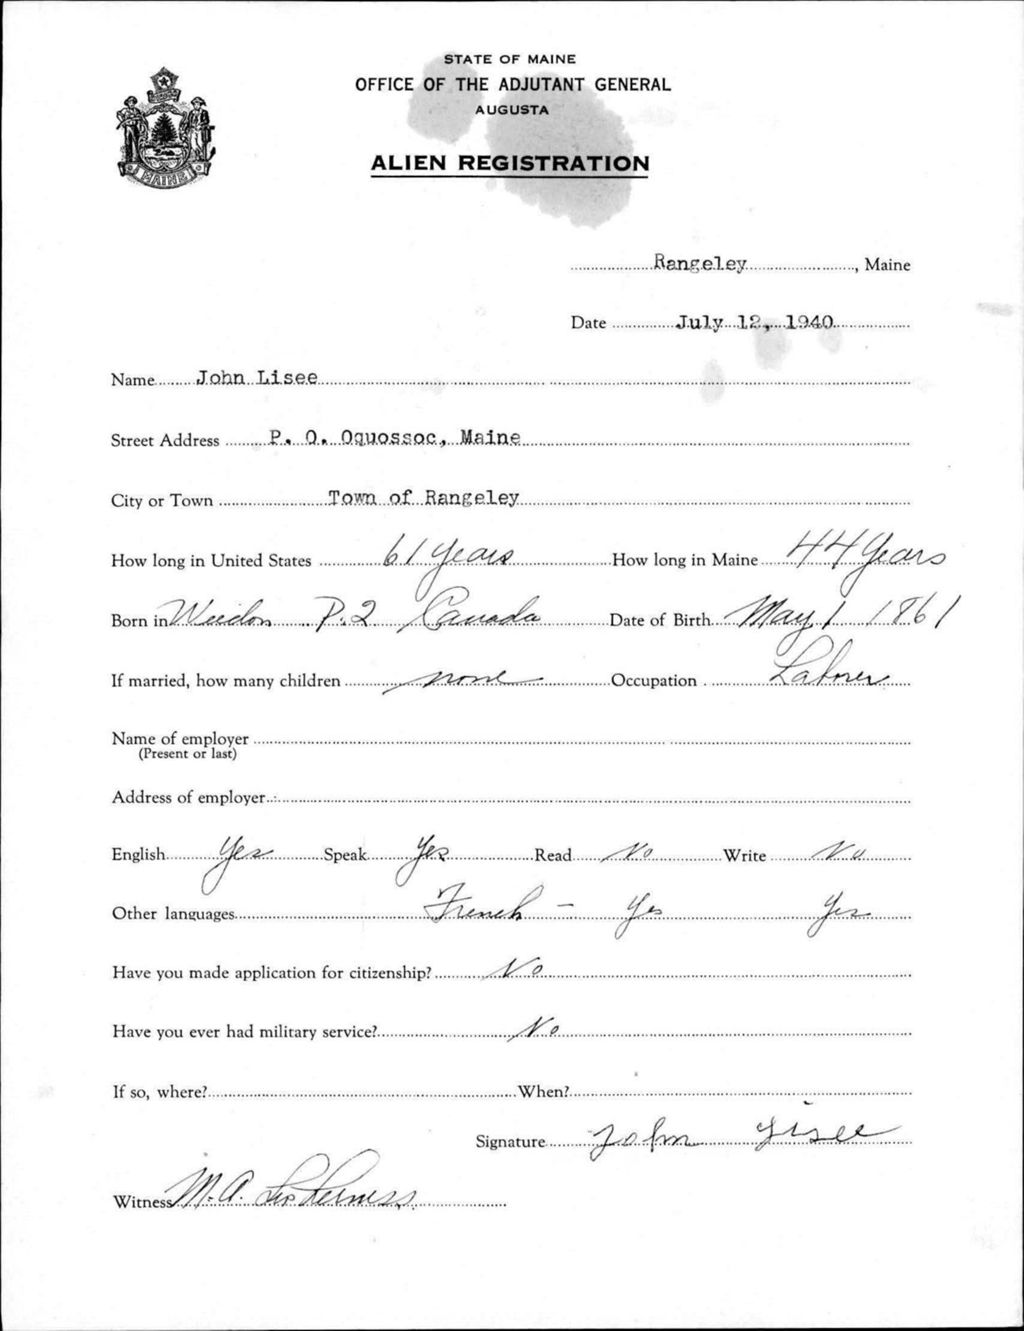 STATE OF MAINE
OFFICE OF THE ADJUTANT GENERAL
AUGUSTA
ALIEN REGISTRATION
MAINE
Rangeley, Maine
Date July 12, 1940
Name John Lisee
Street Address P. O. Oquossoc, Maine
City or Town Town of Rangeley
How long in United States 61 Years How long in Maine 44 Years
Born in Weedon P.Q Canada Date of Birth May 1 1861
If married, how many children none Occupation Laborer
Name of employer
(Present or last)
Address of employer
English Yes Speak Yes Read No Write No
Other languages French - Yes Yes
Have you made application for citizenship? No
Have you ever had military service? No
If so, where? When?
Signature John Lisee
Witness M. A.